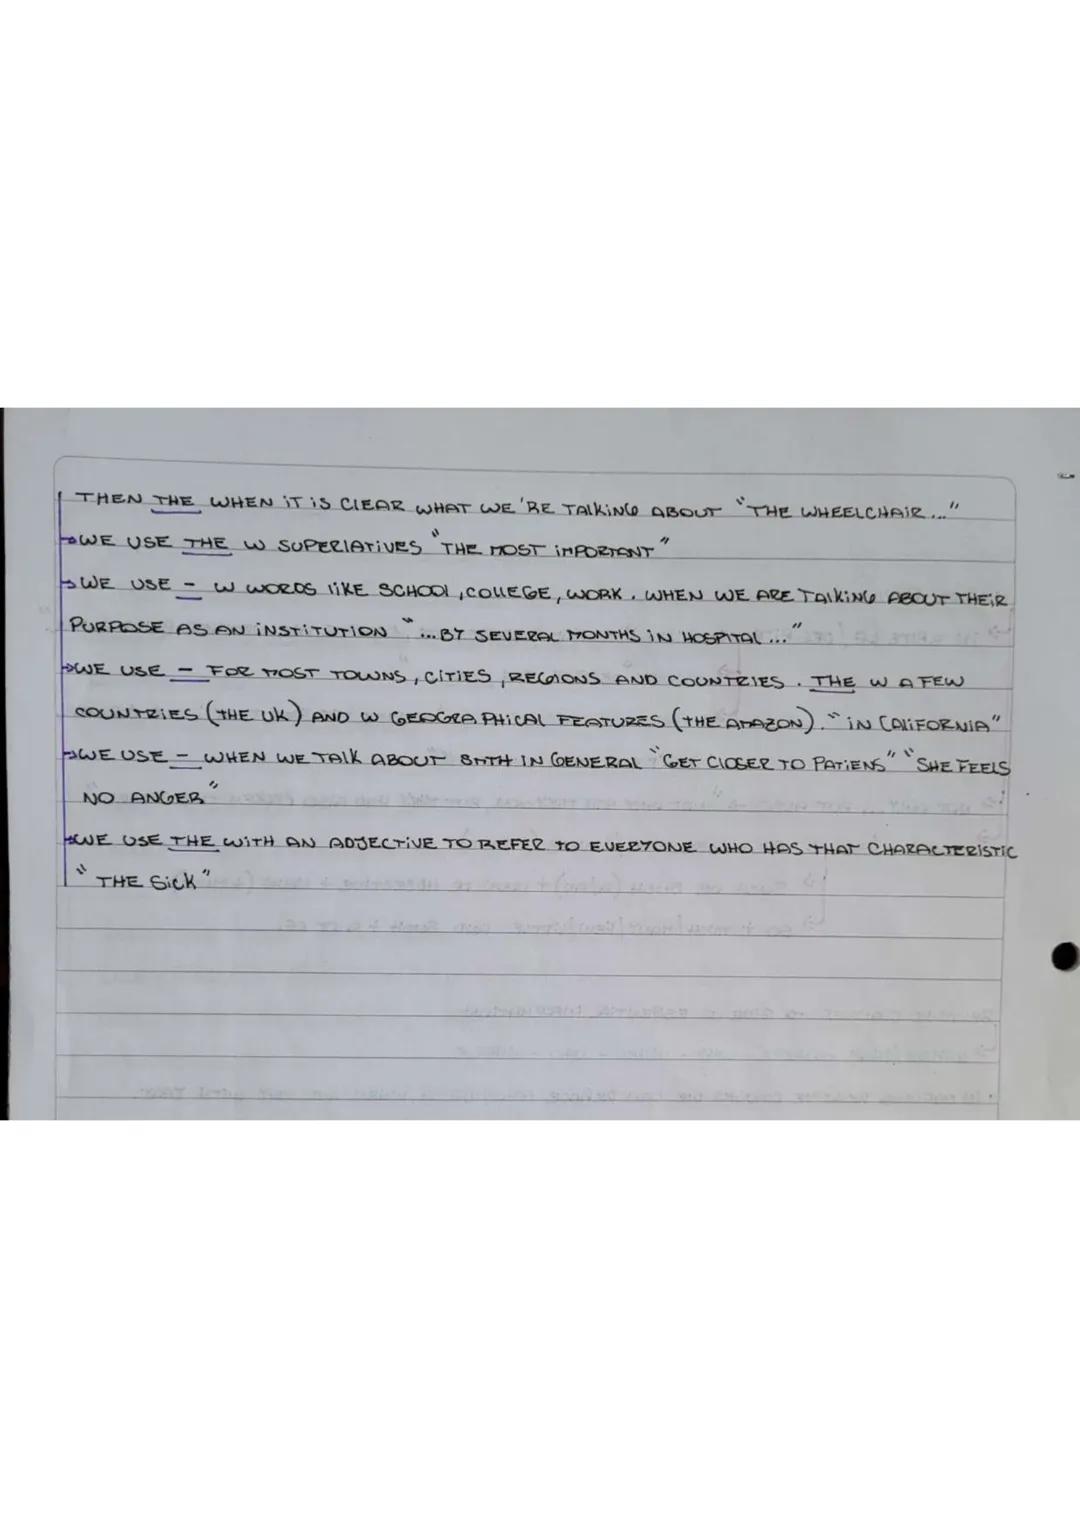 THEN THE WHEN IT IS CLEAR WHAT WE'RE TALKING ABOUT "THE WHEELCHAIR..."
→WE USE THE W SUPERLATIVES "THE MOST IMPORTANT"
→WE USE – W WORDS LIKE SCHOOL, COLLEGE, WORK. WHEN WE ARE TALKING ABOUT THEIR
PURPOSE AS AN INSTITUTION "...BY SEVERAL MONTHS IN HOSPITAL..."
→WE USE – FOR MOST TOWNS, CITIES, REGIONS AND COUNTRIES. THE W A FEW
COUNTRIES (THE UK) AND W GEOGRAPHICAL FEATURES (THE AMAZON). "IN CALIFORNIA"
→WE USE – WHEN WE TALK ABOUT SMTH IN GENERAL "GET CLOSER TO PATIENS" "SHE FEELS
NO ANGER"
→WE USE THE WITH AN ADJECTIVE TO REFER TO EVERYONE WHO HAS THAT CHARACTERISTIC
"THE SICK"